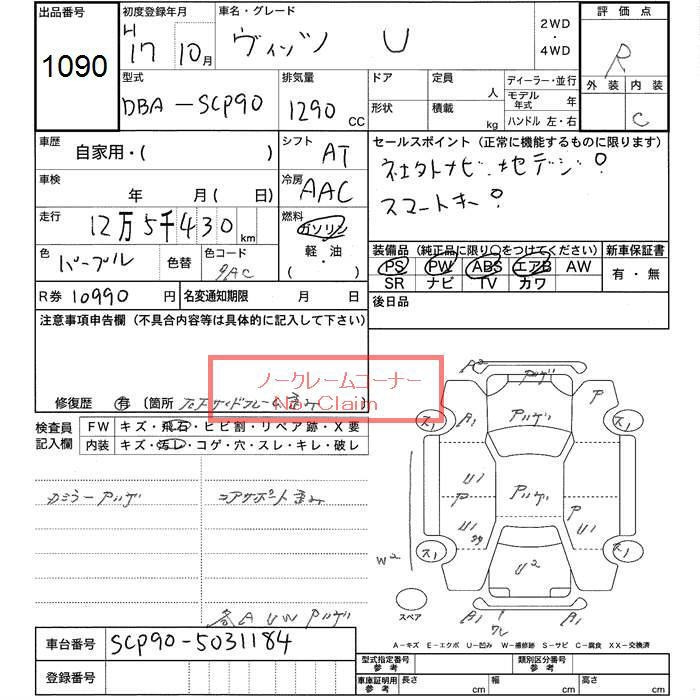 出品番号 初度登録年月 車名・グレード 2WD ・ 4WD 評価点
1090 H 17 10月 ヴィッツ U R
外装 内装
C
型式 排気量 ドア 定員 人 ディーラー・並行
DBA-SCP90 1290 CC 形状 積載 kg モデル年式 年
ハンドル 左・右
車歴 自家用・( ) シフト AT セールスポイント (正常に機能するものに限ります)
車検 年 月 ( 日) 冷房 AAC
スマートキー
走行 12万5千430km 燃料 ガソリン 軽・油 ・( )
色 パープル 色替 色コード 9AC
装備品 (純正品に限り○をつけてください) 新車保証書
PS PW ABS エアB AW 有・無
SR ナビ TV カワ
R券 10990円 名変通知期限 月 日 後日品
注意事項申告欄 (不具合内容等は具体的に記入して下さい)
ノークレームコーナー
No-Claim
修復歴 有 〔箇所
検査員記入欄 FW キズ・飛石・ヒビ割・リペア跡・X要
内装 キズ・汚レ・コゲ・穴・スレ・キレ・破レ
コアサポート歪み
各A U W アリ
A2
P
A1 A1
ス1 ス1
U1
P P
U1 U1
W2
ス1 ス1
U2
スペア
A1 A1
ワレ
A-キズ E-エクボ U-凹み W-補修跡 S-サビ C-腐食 XX-交換済
車台番号 SCP90-5031184
登録番号
型式指定番号 参考 類別区分番号 参考
車庫証明用 参考 長さ cm 幅 cm 高さ cm